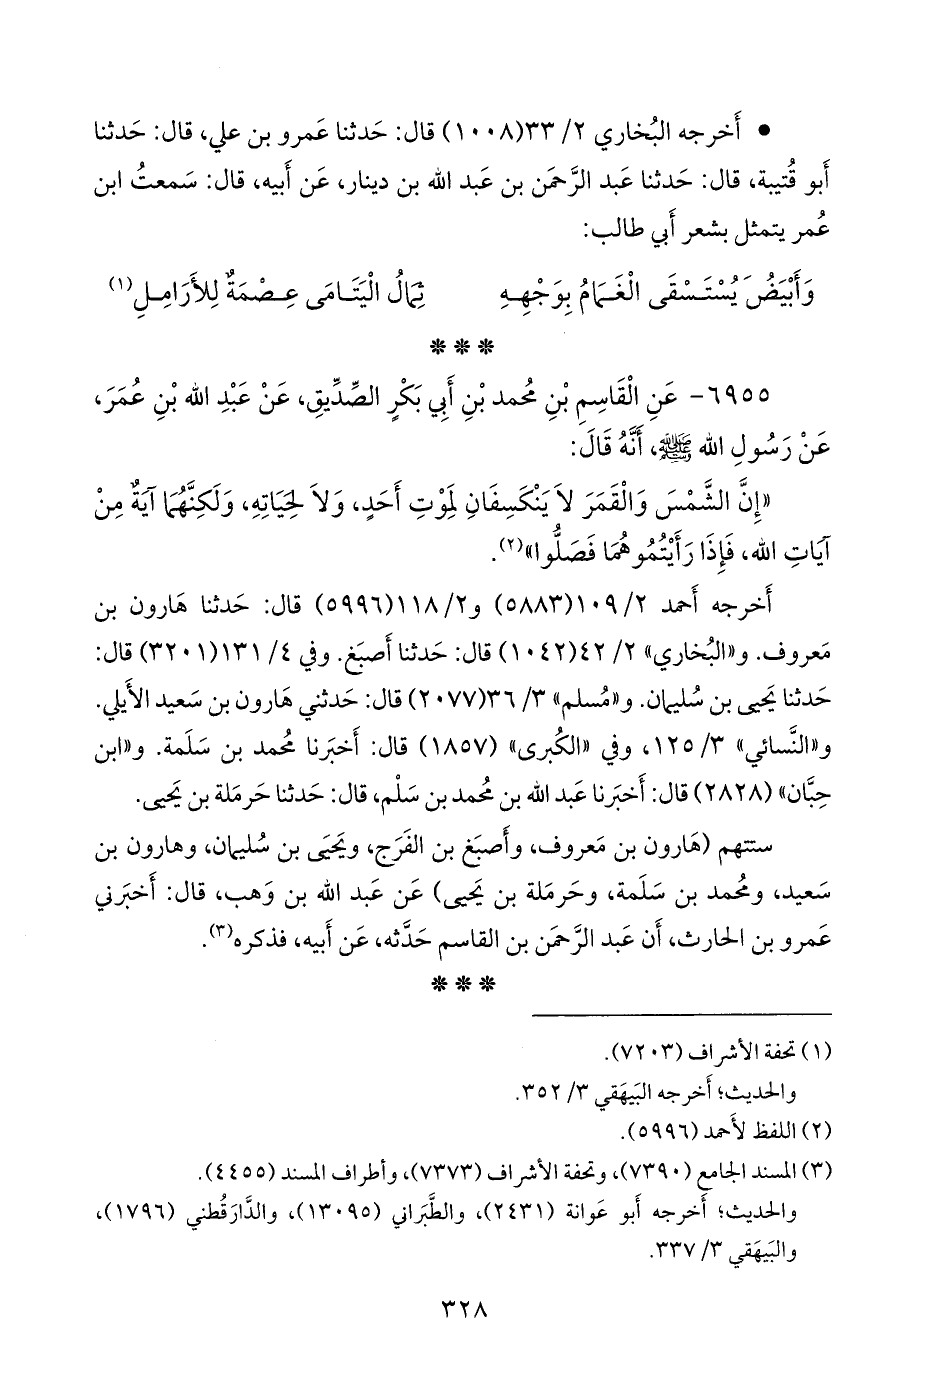 • أَخرجه البُخاري ٢/ ٣٣(١٠٠٨) قال: حَدثنا عَمرو بن علي، قال: حَدثنا
أَبو قُتيبة، قال: حَدثنا عَبد الرَّحمَن بن عَبد الله بن دينار، عَن أَبيه، قال: سَمعتُ ابن
عُمر يتمثل بشعر أَبي طالب:
وَأَبْيَضُ يُسْتَسْقَى الْغَمَامُ بِوَجْهِهِ ثِمَالُ الْيَتَامَى عِصْمَةٌ لِلأَرَامِلِ(١)
* * *
٦٩٥٥- عَنِ الْقَاسِمِ بْنِ مُحمد بْنِ أَبِي بَكْرٍ الصِّدِّيقِ، عَنْ عَبْدِ الله بْنِ عُمَرَ،
عَنْ رَسُولِ الله ﷺ، أَنَّهُ قَالَ:
«إِنَّ الشَّمْسَ وَالْقَمَرَ لاَ يَنْكَسِفَانِ لِمَوْتِ أَحَدٍ، وَلاَ لِحَيَاتِهِ، وَلَكِنَّهُمَا آيَةٌ مِنْ
آيَاتِ الله، فَإِذَا رَأَيْتُمُوهُمَا فَصَلُّوا»(٢).
أَخرجه أَحمد ٢/ ١٠٩(٥٨٨٣) و٢/ ١١٨(٥٩٩٦) قال: حَدثنا هَارون بن
مَعروف. و«البُخاري» ٢/ ٤٢(١٠٤٢) قال: حَدثنا أَصبَغ. وفي ٤/ ١٣١(٣٢٠١) قال:
حَدثنا يَحيى بن سُليمان. و«مُسلم» ٣/ ٣٦(٢٠٧٧) قال: حَدثني هَارون بن سَعيد الأَيلي.
و«النَّسائي» ٣/ ١٢٥، وفي «الكُبرى» (١٨٥٧) قال: أَخبَرنا مُحمد بن سَلَمة. و«ابن
حِبَّان» (٢٨٢٨) قال: أَخبَرنا عَبد الله بن مُحمد بن سَلْم، قال: حَدثنا حَرملة بن يَحيى.
ستتهم (هَارون بن مَعروف، وأَصبَغ بن الفَرَج، ويَحيَى بن سُليمان، وهارون بن
سَعيد، ومُحمد بن سَلَمة، وحَرملة بن يَحيى) عَن عَبد الله بن وَهب، قال: أَخبَرني
عَمرو بن الحارث، أن عَبد الرَّحمَن بن القاسم حَدَّثه، عَن أَبيه، فذكره(٣).
* * *
(١) تحفة الأشراف (٧٢٠٣).
والحديث؛ أَخرجه البَيهَقي ٣/ ٣٥٢.
(٢) اللفظ لأَحمد (٥٩٩٦).
(٣) المسند الجامع (٧٣٩٠)، وتحفة الأشراف (٧٣٧٣)، وأطراف المسند (٤٤٥٥).
والحديث؛ أَخرجه أَبو عَوانة (٢٤٣١)، والطَّبَراني (١٣٠٩٥)، والدَّارَقُطني (١٧٩٦)،
والبَيهَقي ٣/ ٣٣٧.
٣٢٨